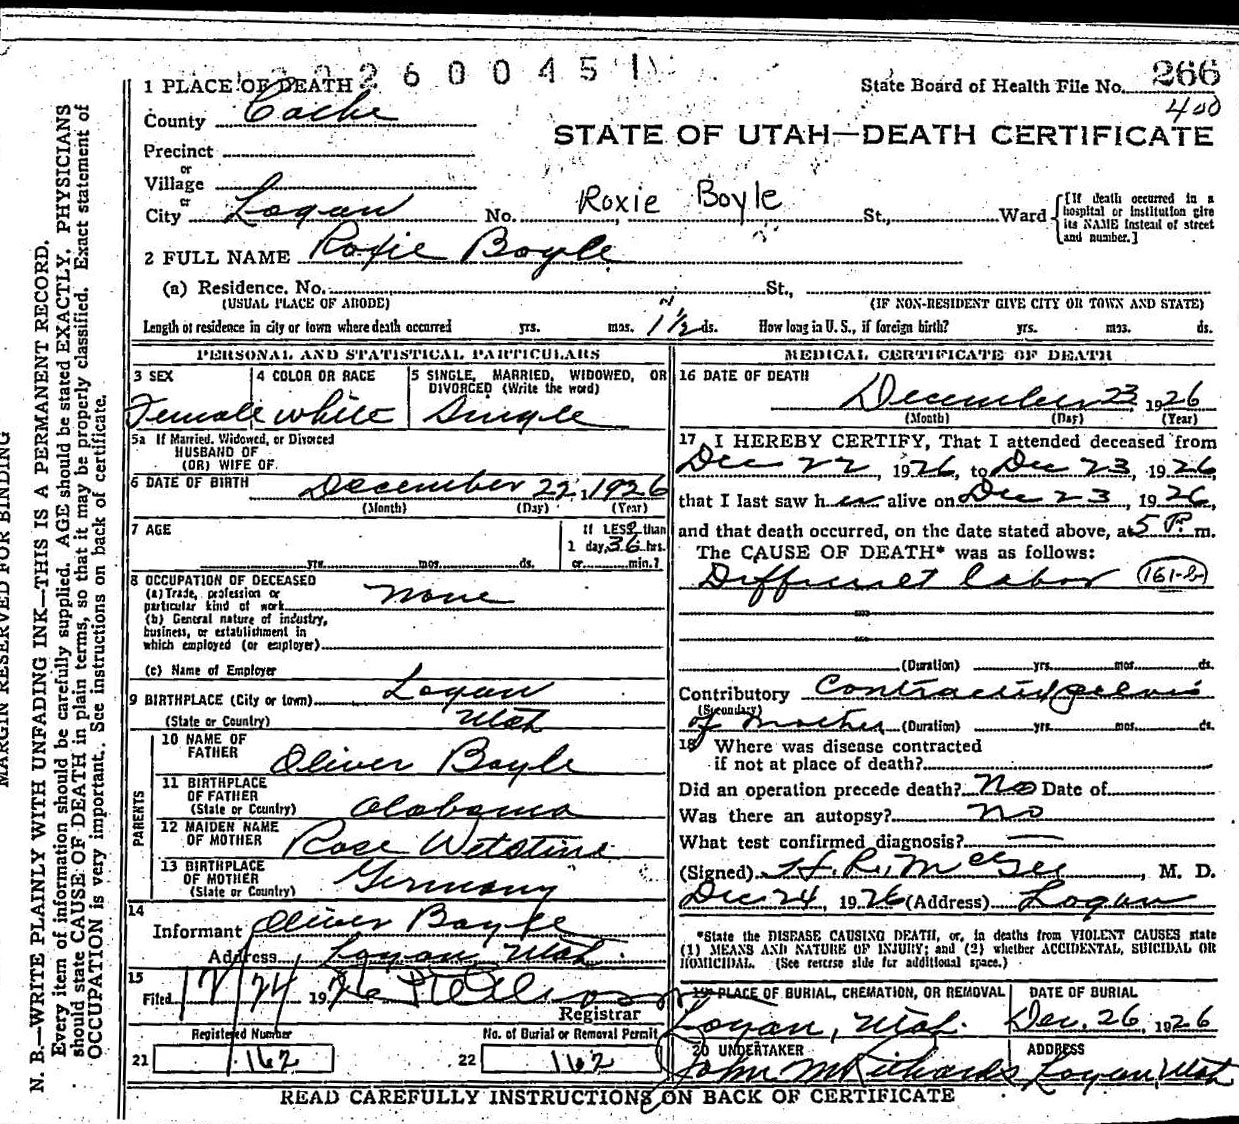 2600451
1 PLACE OF DEATH
State Board of Health File No. 266
400
County Cache
STATE OF UTAH—DEATH CERTIFICATE
Precinct
or
Village
or
City Logan No. Roxie Boyle St., Ward
[If death occurred in a hospital or institution give its NAME instead of street and number.]
2 FULL NAME Roxie Boyle
(a) Residence. No. St.,
(USUAL PLACE OF ABODE) (IF NON-RESIDENT GIVE CITY OR TOWN AND STATE)
Length of residence in city or town where death occurred yrs. mos. 1 1/2 ds. How long in U. S., if foreign birth? yrs. mos. ds.
PERSONAL AND STATISTICAL PARTICULARS
3 SEX
Female
4 COLOR OR RACE
white
5 SINGLE, MARRIED, WIDOWED, OR
DIVORCED (Write the word)
Single
5a If Married, Widowed, or Divorced
HUSBAND OF
(OR) WIFE OF
6 DATE OF BIRTH December 22, 1926
(Month) (Day) (Year)
7 AGE
yrs. mos. ds.
If LESS than
1 day, 36 hrs.
or min.?
8 OCCUPATION OF DECEASED
(a) Trade, profession or
particular kind of work None
(b) General nature of industry,
business, or establishment in
which employed (or employer)
(c) Name of Employer
9 BIRTHPLACE (City or town) Logan
(State or Country) Utah
PARENTS
10 NAME OF
FATHER Oliver Boyle
11 BIRTHPLACE
OF FATHER
(State or Country) Alabama
12 MAIDEN NAME
OF MOTHER Rose Wetstine
13 BIRTHPLACE
OF MOTHER
(State or Country) Germany
14
Informant Oliver Boyle
Address Logan, Utah.
15
Filed 12/24 1926
Registrar
Registered Number No. of Burial or Removal Permit
21 162 22 162
MEDICAL CERTIFICATE OF DEATH
16 DATE OF DEATH
December 23, 1926
(Month) (Day) (Year)
17 I HEREBY CERTIFY, That I attended deceased from
Dec 22, 1926, to Dec 23, 1926,
that I last saw her alive on Dec 23, 1926,
and that death occurred, on the date stated above, at 5 P. m.
The CAUSE OF DEATH* was as follows:
Difficult labor (161-b)
(Duration) yrs. mos. ds.
Contributory Contracted pelvis
(Secondary)
of Mother (Duration) yrs. mos. ds.
18 Where was disease contracted
if not at place of death?
Did an operation precede death? No Date of
Was there an autopsy? No
What test confirmed diagnosis? —
(Signed) H. R. McGee, M. D.
Dec 24, 1926 (Address) Logan
*State the DISEASE CAUSING DEATH, or, in deaths from VIOLENT CAUSES state
(1) MEANS AND NATURE OF INJURY; and (2) whether ACCIDENTAL, SUICIDAL OR
HOMICIDAL. (See reverse side for additional space.)
19 PLACE OF BURIAL, CREMATION, OR REMOVAL
Logan, Utah.
DATE OF BURIAL
Dec. 26, 1926
20 UNDERTAKER
John M Richards
ADDRESS
Logan, Utah
READ CAREFULLY INSTRUCTIONS ON BACK OF CERTIFICATE
MARGIN RESERVED FOR BINDING
N. B.—WRITE PLAINLY WITH UNFADING INK—THIS IS A PERMANENT RECORD.
Every item of information should be carefully supplied. AGE should be stated EXACTLY. PHYSICIANS
should state CAUSE OF DEATH in plain terms, so that it may be properly classified. Exact statement of
OCCUPATION is very important. See instructions on back of certificate.